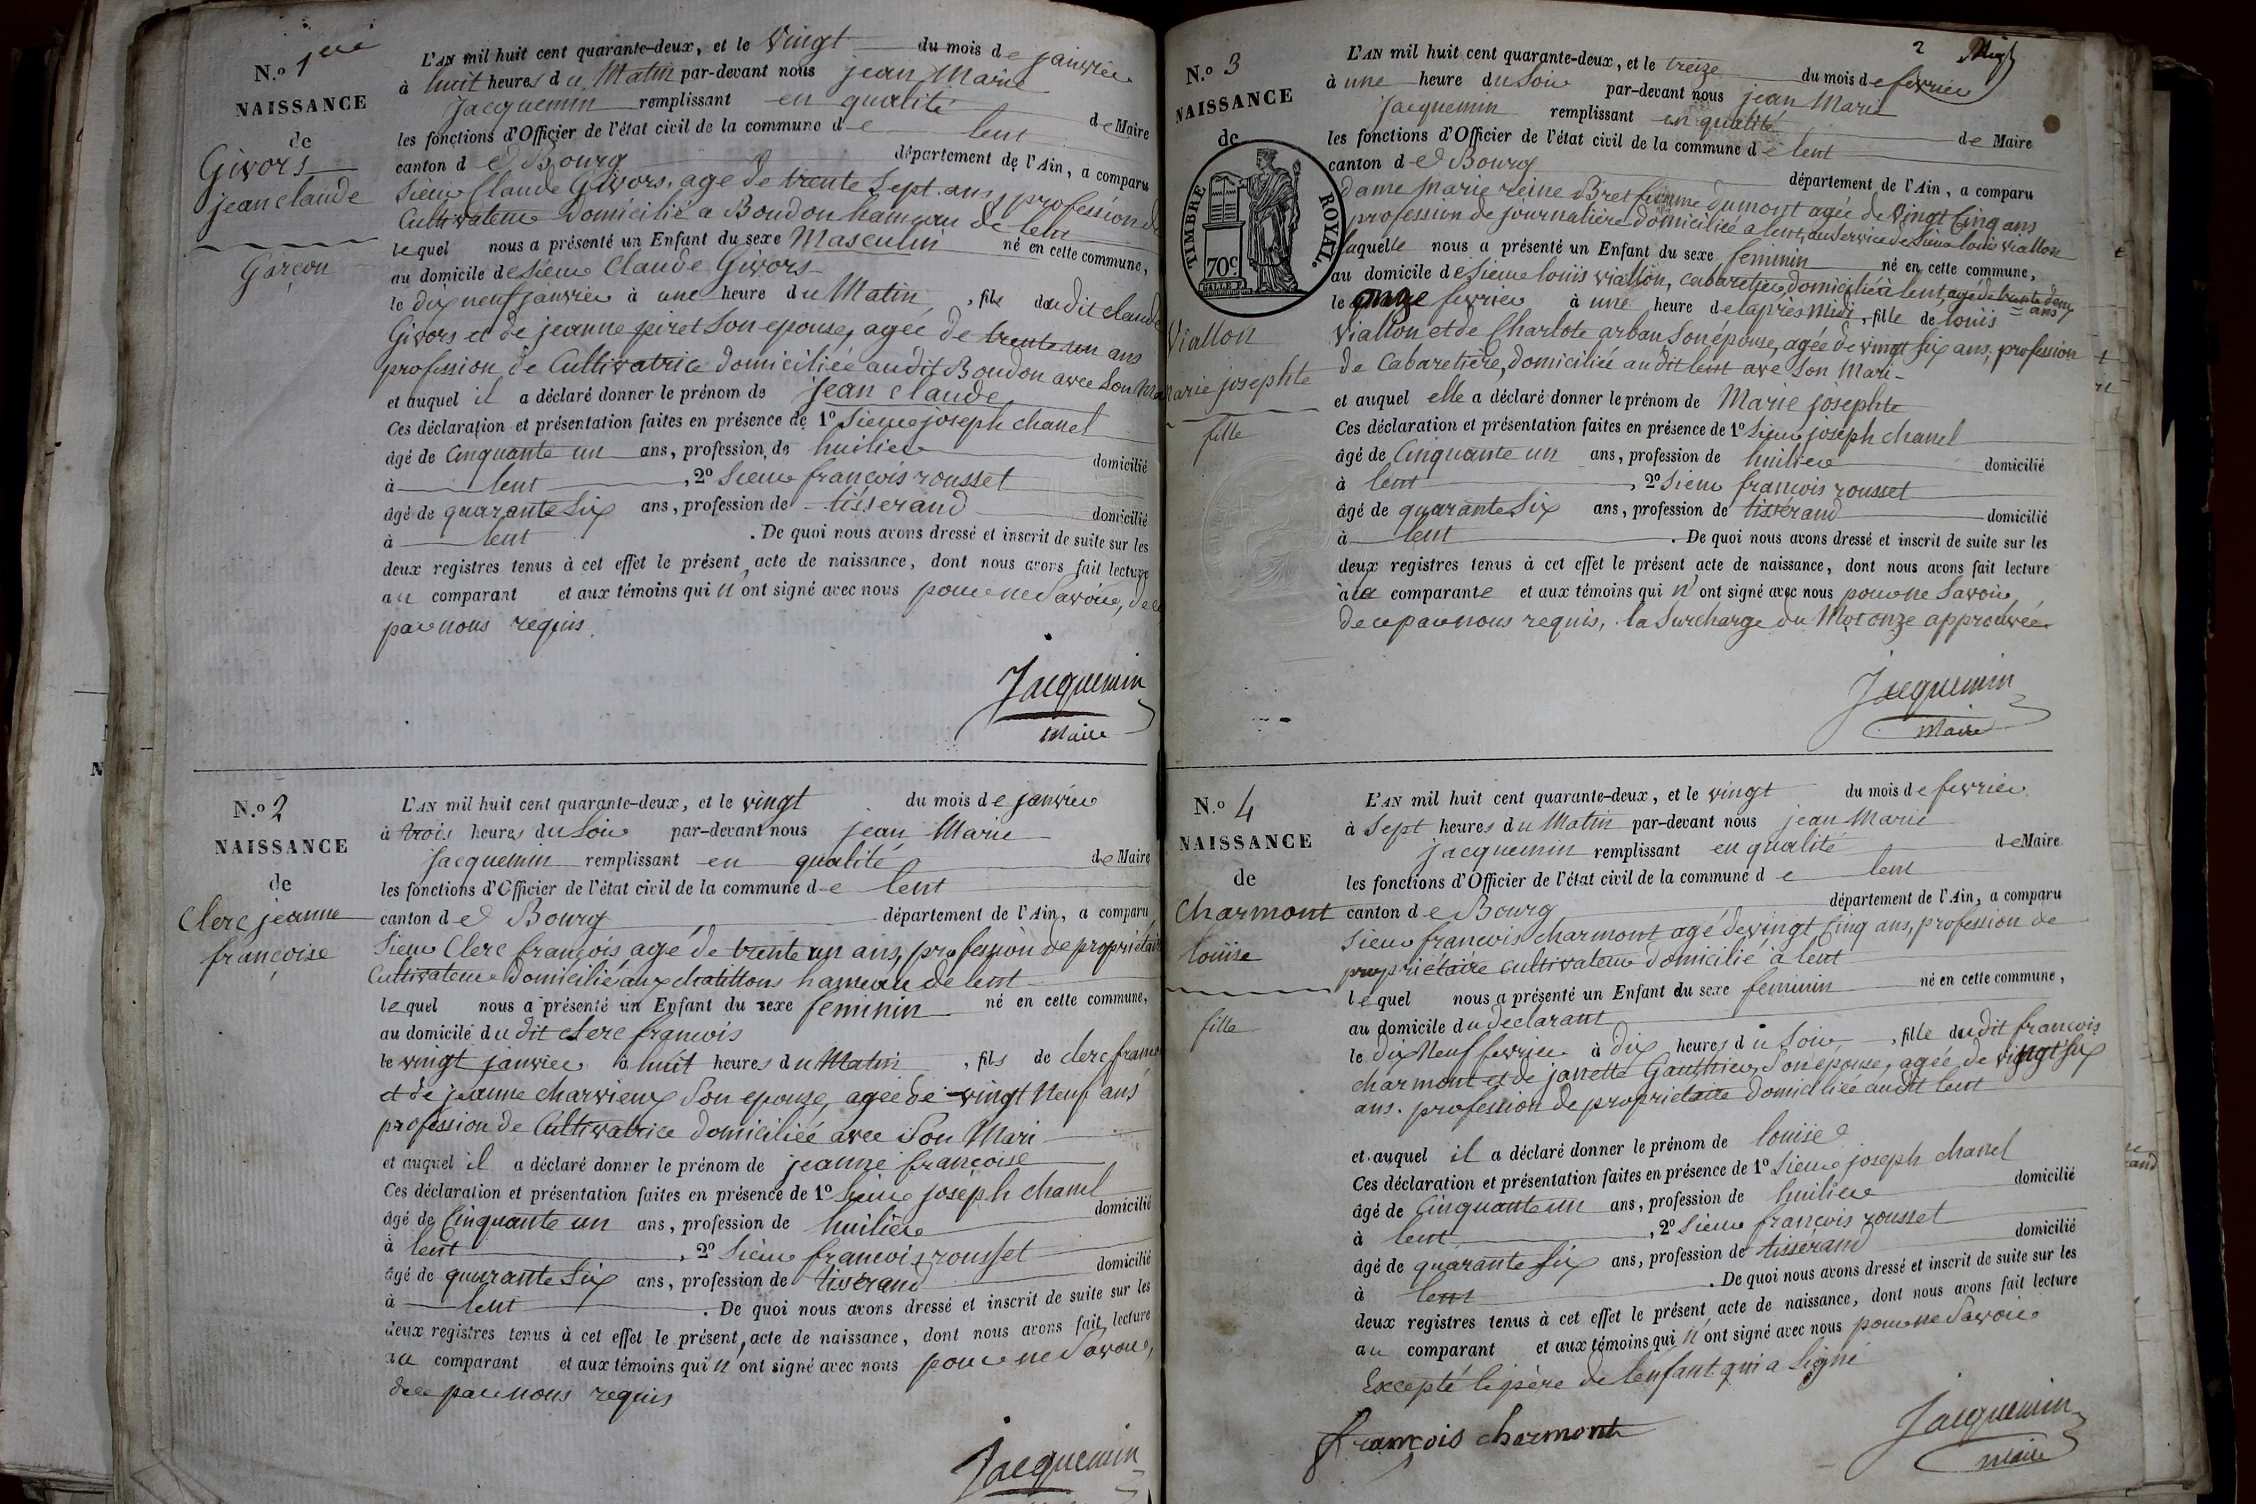 N.o 1er
NAISSANCE
de
Givors
jean claude
Garçon
L'AN mil huit cent quarante-deux, et le vingt du mois de janvier
à huit heures du Matin par-devant nous jean Marie
Jacquemin remplissant en qualité de Maire
les fonctions d'Officier de l'état civil de la commune de lent
canton de Bourg département de l'Ain, a comparu
Sieur Claude Givors, agé de trente Sept ans, profession de
Cultivateur domicilié a Boudon hameau de lent
lequel nous a présenté un Enfant du sexe Masculin né en cette commune,
au domicile de Sieur Claude Givors
le dix neuf janvier à une heure du Matin, fils dudit claude
Givors et de jeanne piret Son epouse, agée de trente un ans
profession de Cultivatrice domiciliée audit Boudon avec Son Ma
et auquel il a déclaré donner le prénom de jean claude
Ces déclaration et présentation faites en présence de 1o Sieur joseph chanel
âgé de Cinquante un ans, profession de huilier domicilié
à lent, 2o Sieur françois rousset
âgé de quarante Six ans, profession de tisserand domicilié
à lent. De quoi nous avons dressé et inscrit de suite sur les
deux registres tenus à cet effet le présent acte de naissance, dont nous avons fait lecture
au comparant et aux témoins qui n'ont signé avec nous pour ne Savoir, de ce
par nous requis.
Jacquemin
Maire
N.o 2
NAISSANCE
de
Clerc jeanne
françoise
L'AN mil huit cent quarante-deux, et le vingt du mois de janvier
à trois heures du Soir par-devant nous jean Marie
Jacquemin remplissant en qualité de Maire
les fonctions d'Officier de l'état civil de la commune de lent
canton de Bourg département de l'Ain, a comparu
Sieur Clerc françois agé de trente un ans, profession de propriétaire
Cultivateur domicilié aux chatillons hameau de lent
lequel nous a présenté un Enfant du sexe feminin né en cette commune,
au domicile du dit clerc françois
le vingt janvier à huit heures du Matin, fils de clerc franc
et de jeanne charvieux Son epouse, agée de vingt Neuf ans
profession de Cultivatrice domiciliée avec Son Mari
et auquel il a déclaré donner le prénom de jeanne françoise
Ces déclaration et présentation faites en présence de 1o Sieur joseph chanel
âgé de Cinquante un ans, profession de huilier domicilié
à lent, 2o Sieur françois rousset
âgé de quarante Six ans, profession de tissérand domicilié
à lent. De quoi nous avons dressé et inscrit de suite sur les
deux registres tenus à cet effet le présent acte de naissance, dont nous avons fait lecture
au comparant et aux témoins qui n'ont signé avec nous pour ne Savoir,
de ce par nous requis
Jacquemin
2
N.o 3
NAISSANCE
de
TIMBRE ROYAL.
70c
Viallon
Marie josephte
fille
L'AN mil huit cent quarante-deux, et le treize du mois de fevrier
à une heure du Soir par-devant nous jean Marie
Jacquemin remplissant en qualité de Maire
les fonctions d'Officier de l'état civil de la commune de lent
canton de Bourg département de l'Ain, a comparu
dame Marie reine Bret femme dumont agée de vingt Cinq ans
profession de journalière domiciliée a lent, au Service de Sieur louis viallon
laquelle nous a présenté un Enfant du sexe feminin né en cette commune,
au domicile de Sieur louis viallon, cabaretier domicilié à lent, agé de trente deux ans
le onze fevrier à une heure de l'après Midi, fille de louis
Viallon et de Charlote arban Son épouse, agée de vingt Six ans, profession
de Cabaretière, domiciliée au dit lent ave Son Mari
et auquel elle a déclaré donner le prénom de Marie josephte
Ces déclaration et présentation faites en présence de 1o Sieur joseph chanel
âgé de Cinquante un ans, profession de huilier domicilié
à lent, 2o Sieur françois rousset
âgé de quarante Six ans, profession de tissérand domicilié
à lent. De quoi nous avons dressé et inscrit de suite sur les
deux registres tenus à cet effet le présent acte de naissance, dont nous avons fait lecture
à la comparante et aux témoins qui n'ont signé avec nous pour ne Savoir
de ce par nous requis, la Surcharge du Mot onze approuvée
Jacquemin
Maire
N.o 4
NAISSANCE
de
Charmont
louise
fille
L'AN mil huit cent quarante-deux, et le vingt du mois de fevrier
à Sept heures du Matin par-devant nous jean Marie
jacquemin remplissant en qualité de Maire
les fonctions d'Officier de l'état civil de la commune de lent
canton de Bourg département de l'Ain, a comparu
Sieur françois charmont agé de vingt Cinq ans, profession de
propriétaire cultivateur domicilié à lent
lequel nous a présenté un Enfant du sexe feminin né en cette commune,
au domicile du déclarant
le dix Neuf fevrier à dix heures du Soir, fille dudit françois
charmont et de janette Gauthier, Son épouse, agée de vingt Six
ans. profession de proprietaire domiciliée audit lent
et auquel il a déclaré donner le prénom de louise
Ces déclaration et présentation faites en présence de 1o Sieur joseph chanel
âgé de Cinquante un ans, profession de huilier domicilié
à lent, 2o Sieur françois rousset
âgé de quarante Six ans, profession de tissérand domicilié
à lent. De quoi nous avons dressé et inscrit de suite sur les
deux registres tenus à cet effet le présent acte de naissance, dont nous avons fait lecture
au comparant et aux témoins qui n'ont signé avec nous pour ne Savoir
Excepté le père de l'enfant qui a Signé
françois charmont
Jacquemin
Maire